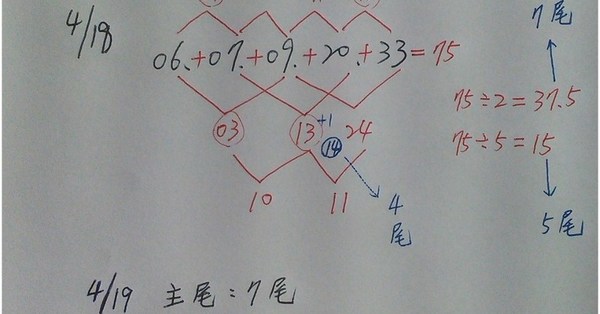 7尾
4/18
06.+07.+09.+20.+33=75
75÷2=37.5
03 13 +1 24
14
75÷5=15
10 11 4尾
5尾
4/19 主尾:7尾